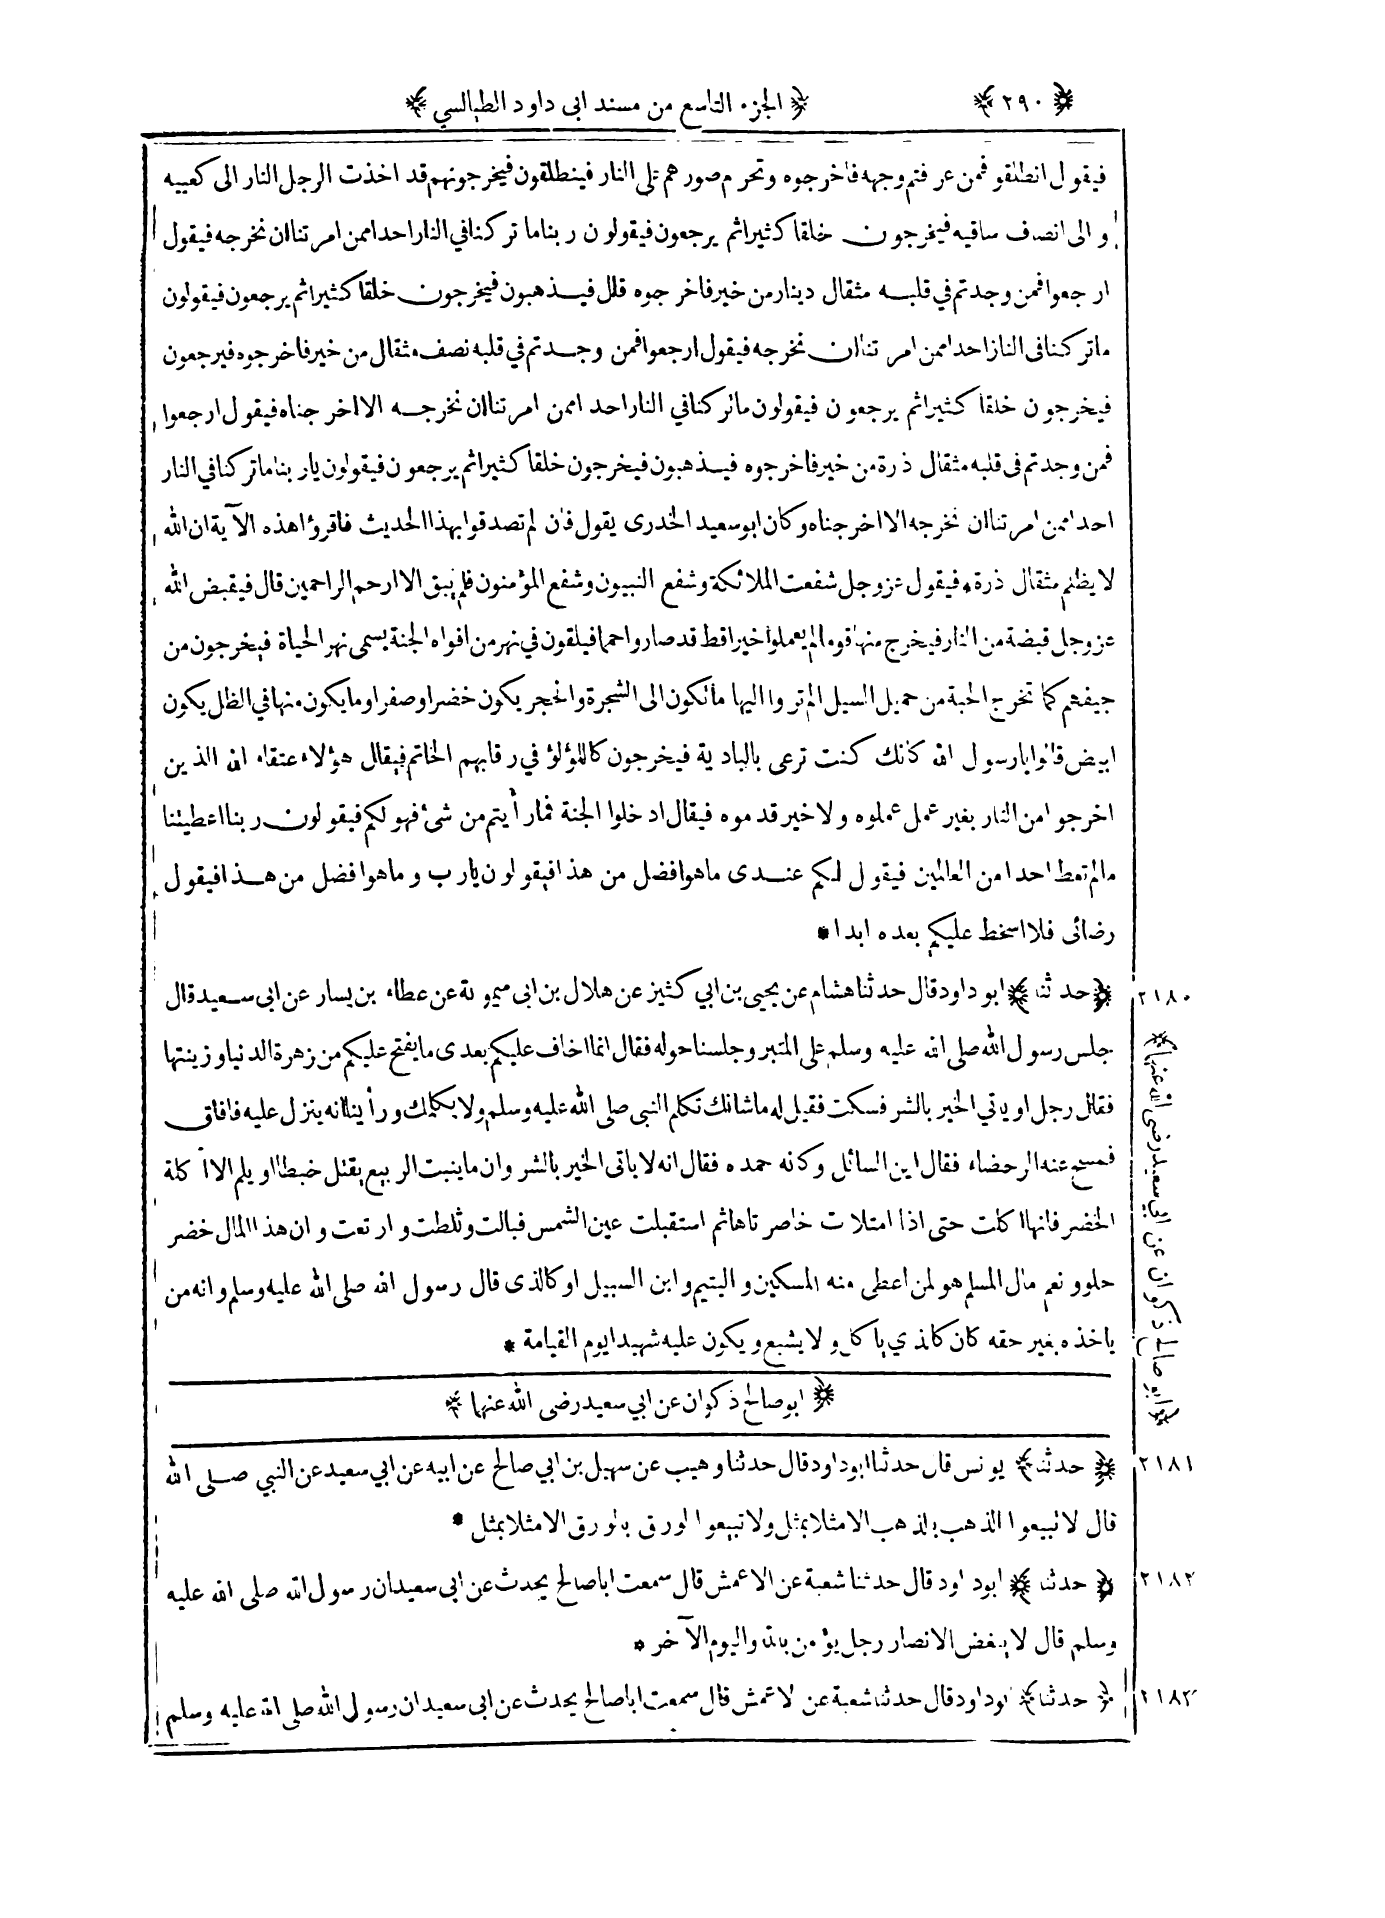 ﴿ ٢٩٠ ﴾ ﴿ الجزء التاسع من مسند ابى داود الطيالسي ﴾
فيقول انطلقو فمن عرفتم وجهه فاخرجوه وتحرم صورهم على النار فينطلقون فيخرجونهم قد اخذت الرجل النار الى كعبيه
و الى انصاف ساقيه فيخرجون خلقا كثيرا ثم يرجعون فيقولون ربنا ما تركنا في النار احدا ممن امرتنا ان نخرجه فيقول
ارجعوا فمن وجدتم في قلبه مثقال دينار من خير فاخرجوه قال فيذهبون فيخرجون خلقا كثيرا ثم يرجعون فيقولون
ما تركنا فى النار احدا ممن امرتنا ان نخرجه فيقول ارجعوا فمن وجدتم في قلبه نصف مثقال من خير فاخرجوه فيرجعون
فيخرجون خلقا كثيرا ثم يرجعون فيقولون ما تركنا في النار احدا ممن امرتنا ان نخرجه الا اخرجناه فيقول ارجعوا
فمن وجدتم فى قلبه مثقال ذرة من خير فاخرجوه فيذهبون فيخرجون خلقا كثيرا ثم يرجعون فيقولون يا ربنا ما تركنا في النار
احدا ممن امرتنا ان نخرجه الا اخرجناه وكان ابو سعيد الخدرى يقول فان لم تصدقوا بهذا الحديث فاقرؤا هذه الآية ان الله
لا يظلم مثقال ذرة * فيقول عز وجل شفعت الملائكة وشفع النبيون وشفع المؤمنون فلم يبق الا ارحم الراحمين قال فيقبض الله
عز وجل قبضة من النار فيخرج منها قوما لم يعملوا خيرا قط قد صاروا حما فيلقون في نهر من افواه الجنة يسمى نهر الحياة فيخرجون من
جيفهم كما تخرج الحبة من حميل السيل الم تروا اليها ما تكون الى الشجرة والحجر يكون خضرا وصفرا وما يكون منها في الظل يكون
ابيض قالوا يا رسول الله كانك كنت ترعى بالبادية فيخرجون كاللؤلؤ في رقابهم الخاتم فيقال هؤلاء عتقاء الله الذين
اخرجوا من النار بغير عمل عملوه ولا خير قدموه فيقال ادخلوا الجنة فما رأيتم من شئ فهو لكم فيقولون ربنا اعطيتنا
ما لم تعط احدا من العالمين فيقول لكم عندى ما هو افضل من هذا فيقولون يا رب و ما هوا فضل من هذا فيقول
رضائى فلا اسخط عليكم بعده ابدا *
٢١٨٠ ﴿ حدثنا ﴾ ابو داود قال حدثنا هشام عن يحيى بن ابي كثير عن هلال بن ابى ميمونة عن عطاء بن يسار عن ابي سعيد قال
جلس رسول الله صلى الله عليه وسلم على المنبر وجلسنا حوله فقال انما اخاف عليكم بعدى ما يفتح عليكم من زهرة الدنيا وزينتها
فقال رجل او ياتي الخير بالشر فسكت فقيل له ما شانك تكلم النبى صلى الله عليه وسلم ولا يكلمك ورأينا انه ينزل عليه فافاق
فمسح عنه الرحضاء فقال اين السائل وكانه حمده فقال انه لا ياتى الخير بالشر وان ما ينبت الربيع يقتل خبطا او يلم الا آكلة
الخضر فانها اكلت حتى اذا امتلات خاصرتاها ثم استقبلت عين الشمس فبالت وثلطت و ارتعت وان هذا المال خضر
حلو ونعم مال المسلم هو لمن اعطى منه المسكين واليتيم وابن السبيل او كالذى قال رسول الله صلى الله عليه وسلم وانه من
ياخذه بغير حقه كان كالذي ياكل ولا يشبع ويكون عليه شهيدا يوم القيامة *
﴿ ابو صالح ذكوان عن ابي سعيد رضى الله عنهما ﴾
﴿ ابو صالح ذكوان عن ابي سعيد رضى الله عنهما ﴾
٢١٨١ ﴿ حدثنا ﴾ يونس قال حدثنا ابو داود قال حدثنا وهيب عن سهيل بن ابي صالح عن ابيه عن ابي سعيد عن النبي صلى الله
قال لا تبيعوا الذهب بالذهب الا مثلا بمثل ولا تبيعوا الورق بالورق الا مثلا بمثل *
٢١٨٢ ﴿ حدثنا ﴾ ابو داود قال حدثنا شعبة عن الاعمش قال سمعت ابا صالح يحدث عن ابى سعيد ان رسول الله صلى الله عليه
وسلم قال لا يبغض الانصار رجل يؤمن بالله واليوم الآخر *
٢١٨٣ ﴿ حدثنا ﴾ ابو داود قال حدثنا شعبة عن الاعمش قال سمعت ابا صالح يحدث عن ابى سعيد ان رسول الله صلى الله عليه وسلم